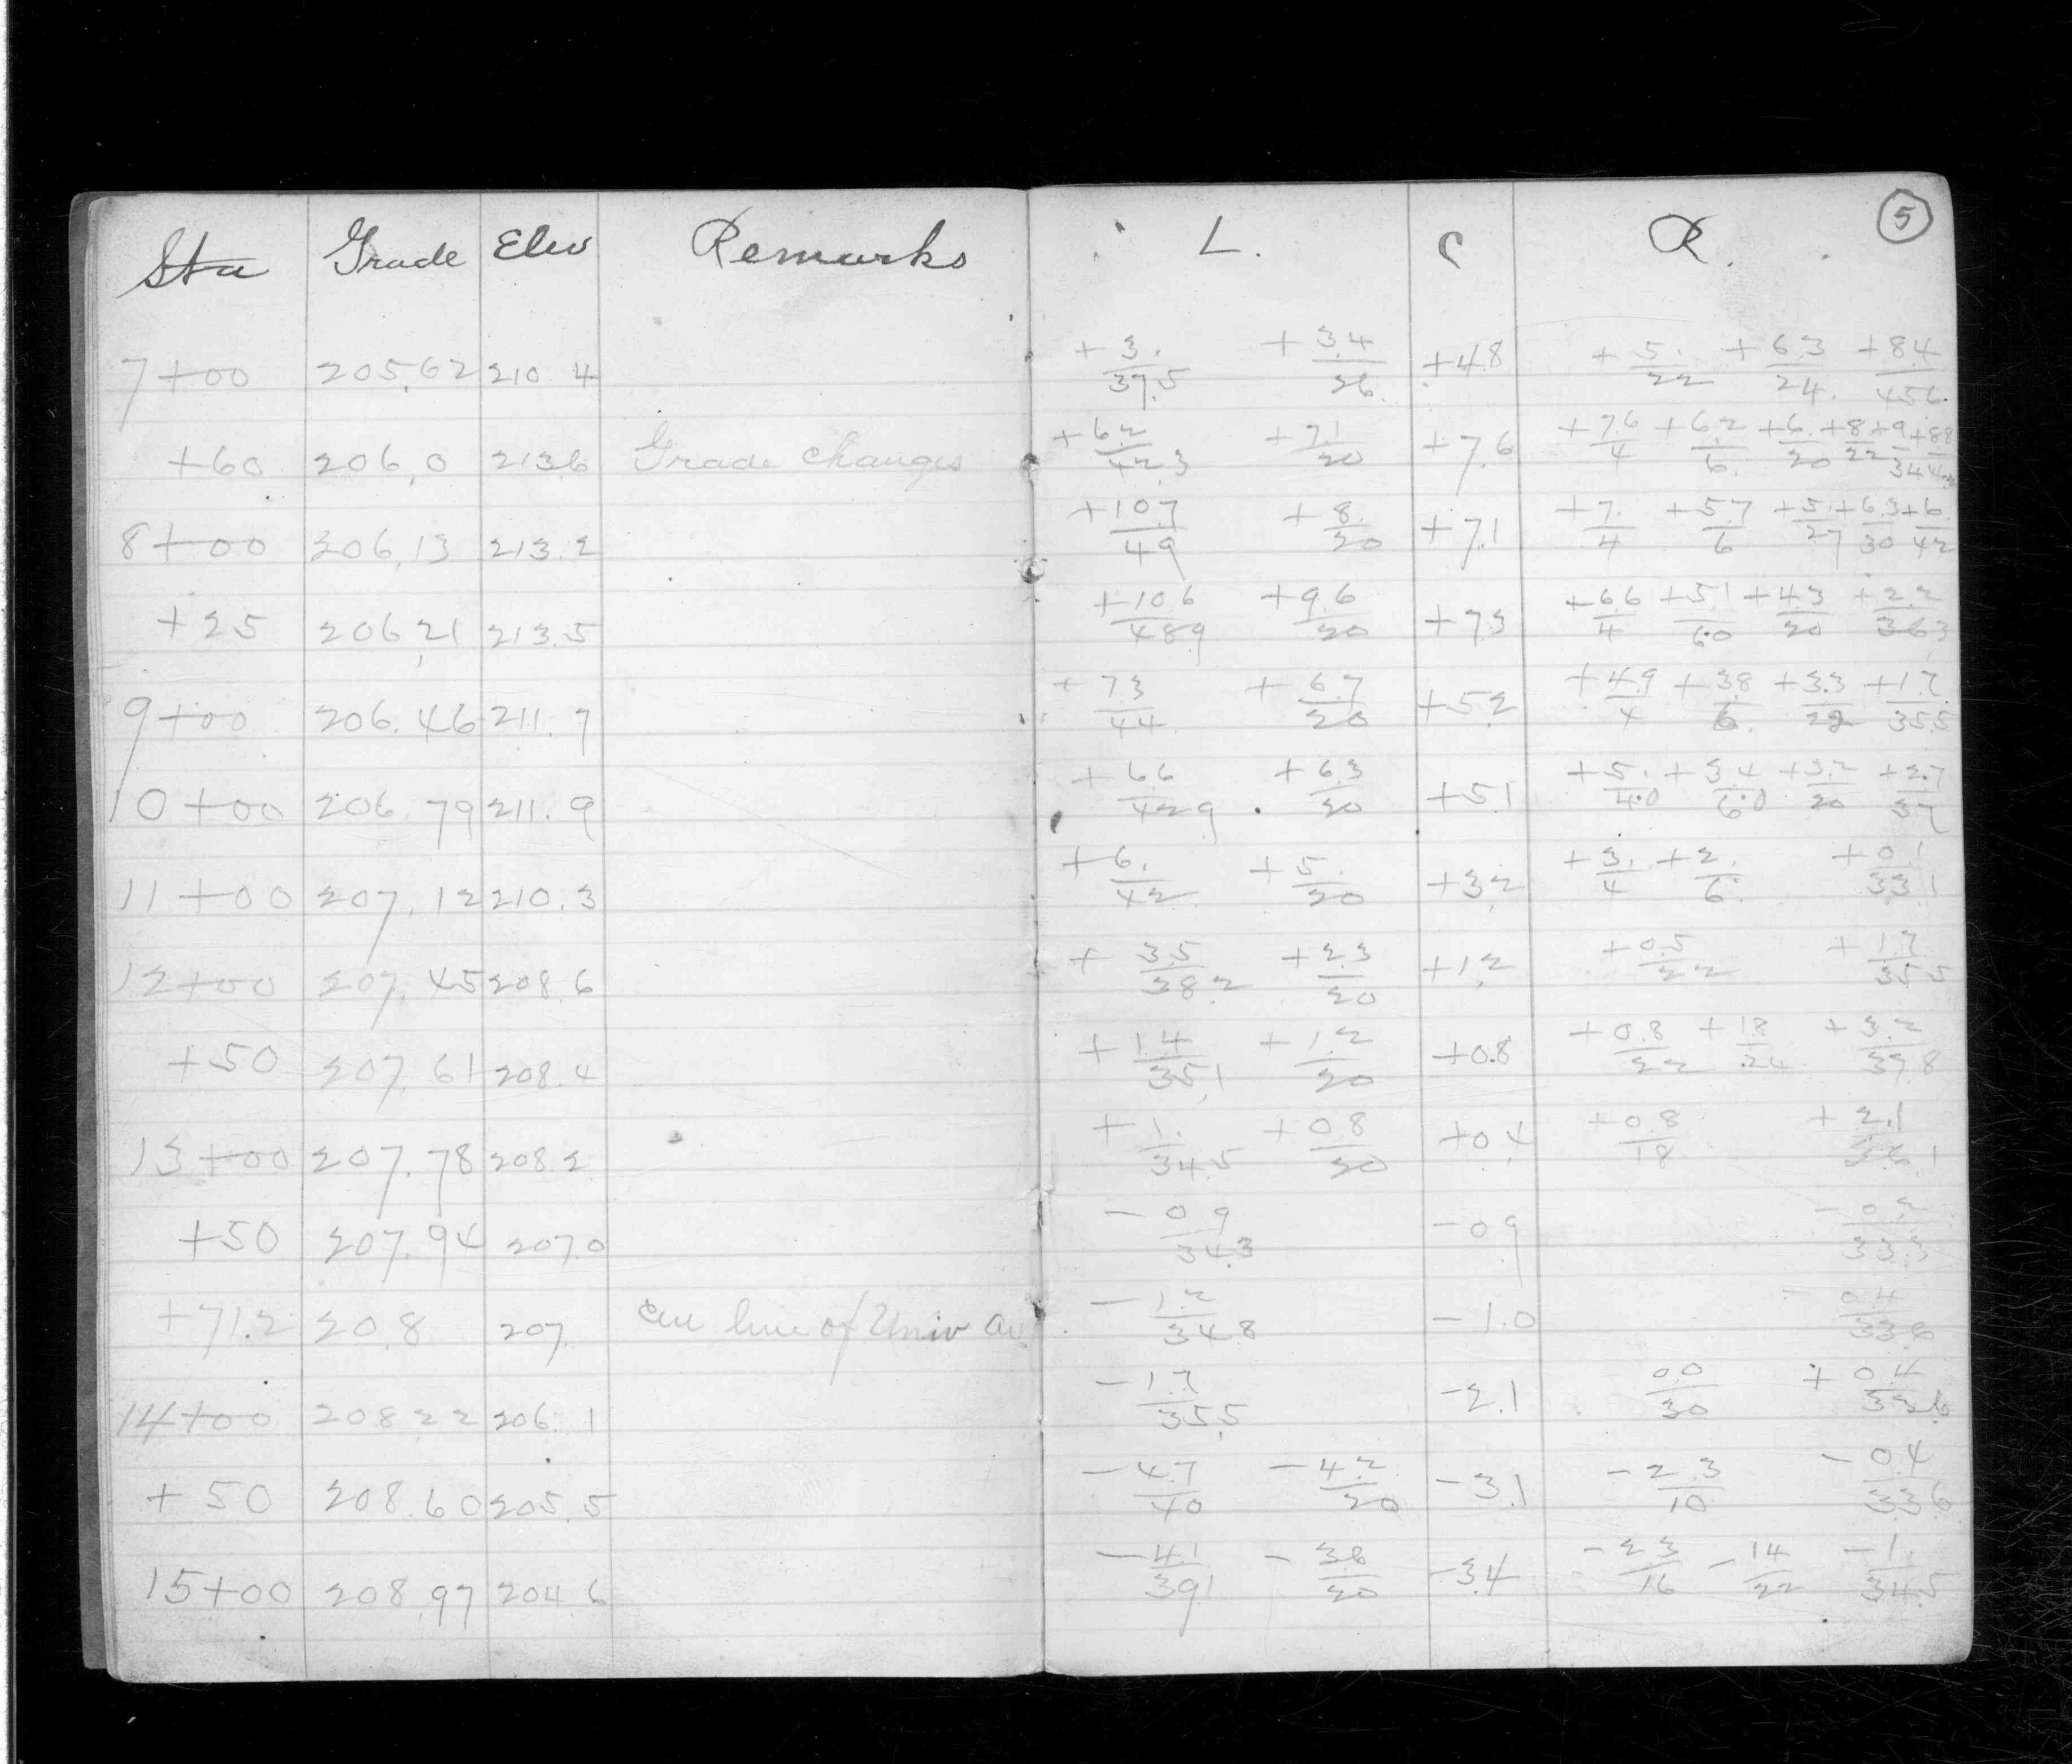 Sta Grade Elev Remarks L. C R. 5
7+00 205.62 210.4 +3./37.5 +3.4/26. +4.8 +5./22 +6.3/24. +8.4/45.6
+60 206.0 213.6 Grade changes +6.2/42.3 +7.1/20 +7.6 +7.6/4 +6.2/6. +6./20 +8/22 +9/34 +8.8
8+00 206.13 213.2 +10.7/49 +8./20 +7.1 +7./4 +5.7/6 +5./27 +6.3/30 +6./42
+25 206.21 213.5 +10.6/48.9 +9.6/20 +7.3 +6.6/4 +5.1/6.0 +4.3/20 +2.2/36.3
9+00 206.46 211.7 +7.3/44 +6.7/20 +5.2 +4.9/4 +3.8/6. +3.3/22 +1.7/35.5
10+00 206.79 211.9 +6.6/42.9 +6.3/20 +5.1 +5./4.0 +3.4/6.0 +3.2/20 +2.7/37
11+00 207.12 210.3 +6./42 +5./20 +3.2 +3./4 +2./6. +0.1/33.1
12+00 207.45 208.6 +3.5/38.2 +2.3/20 +1.2 +0.5/22 +1.7/35.5
+50 207.61 208.4 +1.4/35.1 +1.2/20 +0.8 +0.8/22 +1.8/24 +3.2/37.8
13+00 207.78 208.2 +1./34.5 +0.8/20 +0.4 +0.8/18 +2.1/36.1
+50 207.94 207.0 -0.9/34.3 -0.9 -0.2/33.3
+71.2 20.8 207. Cen line of Univ av. -1.2/34.8 -1.0 -0.4/33.6
14+00 208.22 206.1 -1.7/35.5 -2.1 0.0/30 +0.4/33.6
+50 208.60 205.5 -4.7/40 -4.2/20 -3.1 -2.3/10 -0.4/33.6
15+00 208.97 204.6 -4.1/39.1 -3.8/20 -3.4 -2.3/16 -1.4/22 -1./34.5